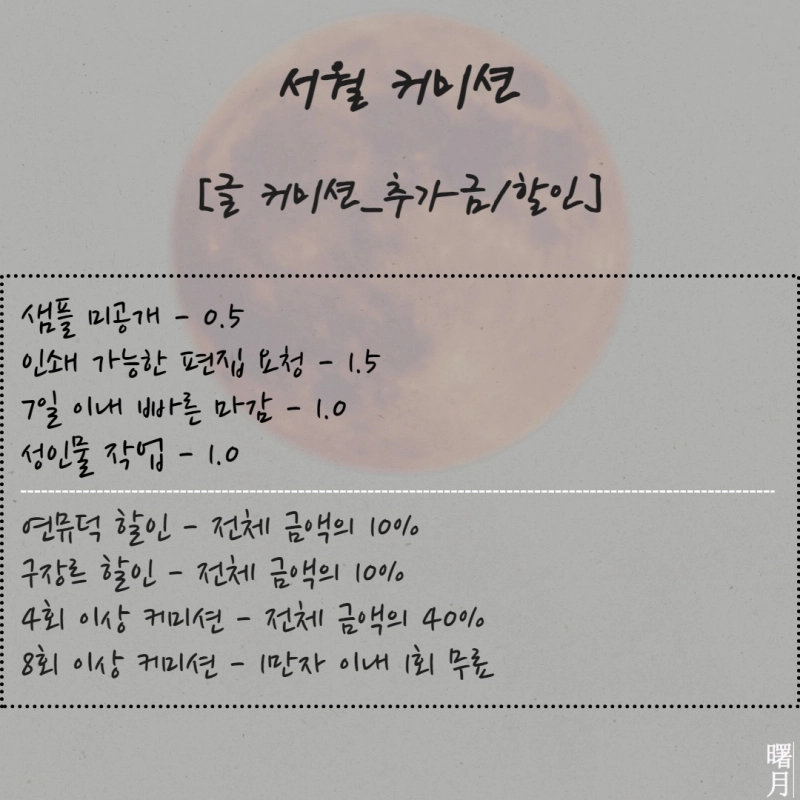 서월 커미션
[글 커미션_추가금/할인]
샘플 미공개 - 0.5
인쇄 가능한 편집 요청 - 1.5
7일 이내 빠른 마감 - 1.0
성인물 작업 - 1.0
연뮤덕 할인 - 전체 금액의 10%
구장르 할인 - 전체 금액의 10%
4회 이상 커미션 - 전체 금액의 40%
8회 이상 커미션 - 1만자 이내 1회 무료
曙月